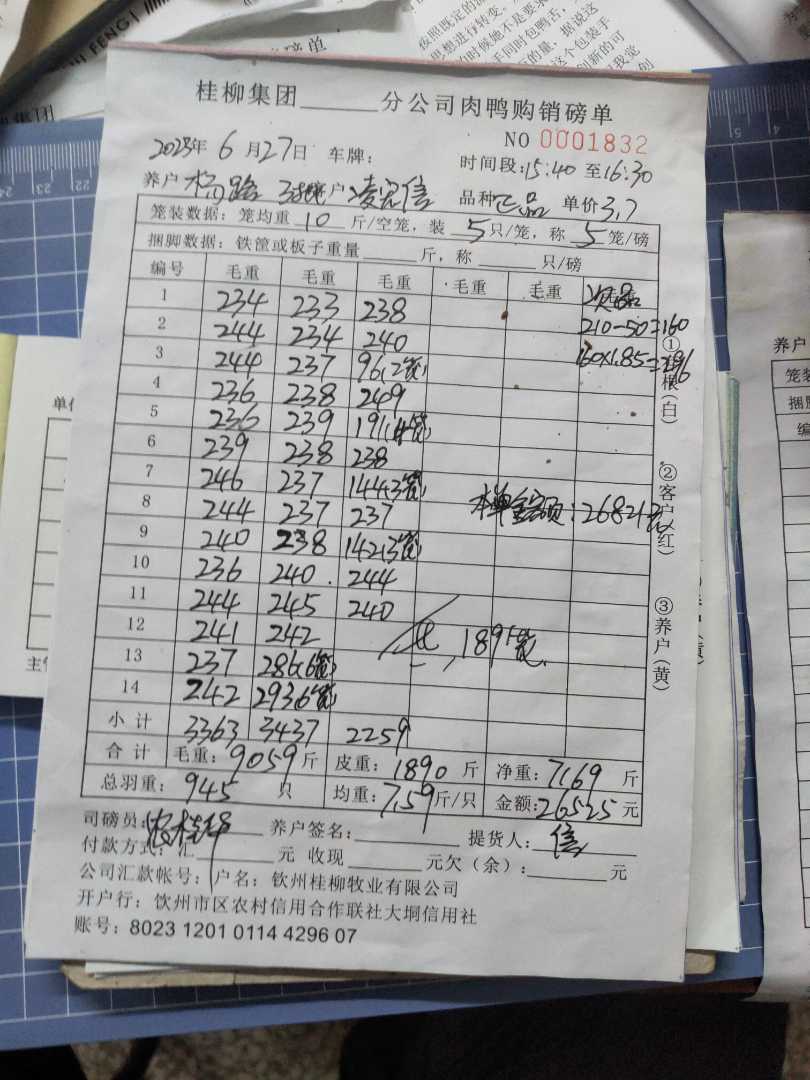 桂柳集团______分公司肉鸭购销磅单
NO 0001832
2023年 6 月27日 车牌:
时间段:15:40 至16:30
养户 杨 户:凌 信 品种正品 单价3.7
笼装数据:笼均重 10 斤/空笼,装 5 只/笼,称 5 笼/磅
捆脚数据:铁筐或板子重量______斤,称______只/磅
编号 毛重 毛重 毛重 毛重 毛重 次品
1 234 233 238 210-50=160
2 244 234 240 160×1.85=296
3 244 237 96(2笼)
4 236 238 249
5 236 239 191(4笼)
6 239 238 238
7 246 237 144(3笼)
8 244 237 237 本单金额:26821元
9 240 238 142(3笼)
10 236 240 244
11 244 245 240
12 241 242 共 189笼
13 237 286(6笼)
14 242 293(6笼)
小计 3363 3437 2259
合计 毛重:9059斤 皮重:1890 斤 净重:7169 斤
总羽重:945 只 均重:7.59斤/只 金额:26525元
司磅员: 养户签名:______ 提货人:信
付款方式:汇______元 收现______元欠(余):______元
公司汇款帐号:户名:钦州桂柳牧业有限公司
开户行:饮州市区农村信用合作联社大垌信用社
账号:8023 1201 0114 4296 07
①存根(白)
②客户(红)
③养户(黄)